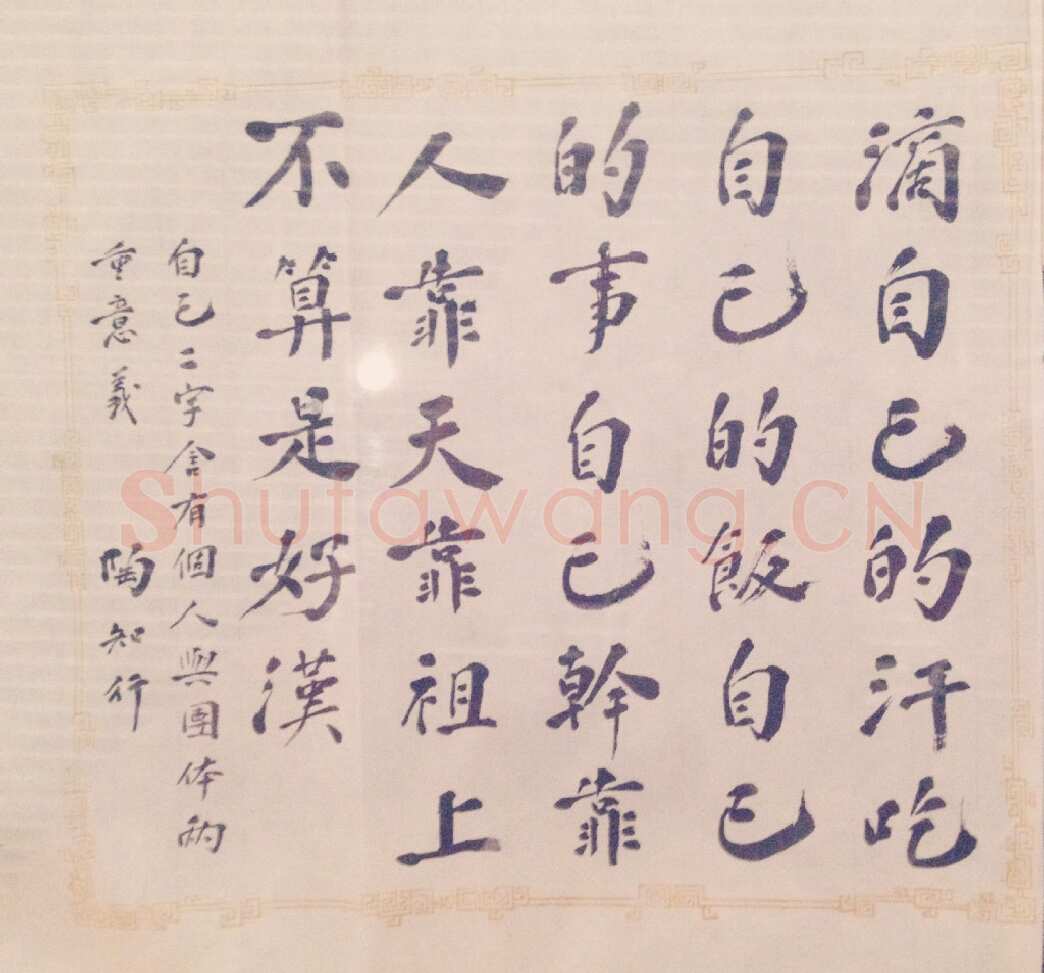 滴自己的汗吃
自己的飯自己
的事自己幹靠
人靠天靠祖上
不算是好漢
自己二字含有個人與團体兩
重意義
陶知行
Shufawang.CN